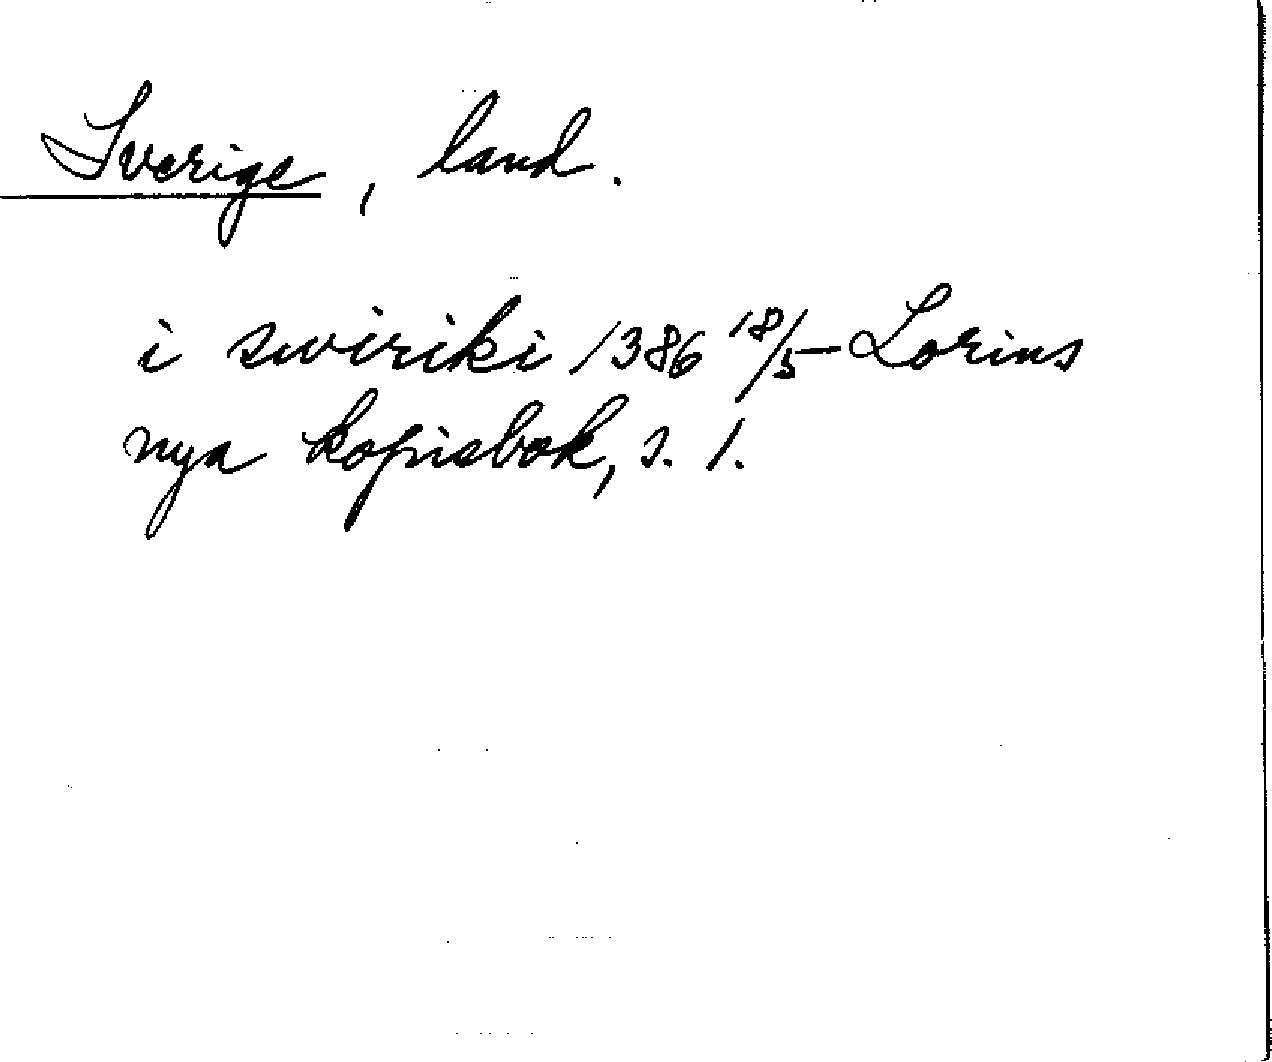 Sverige, land.
i swiriki 1386 18/5 Lorins
nya kopiebok, s. 1.